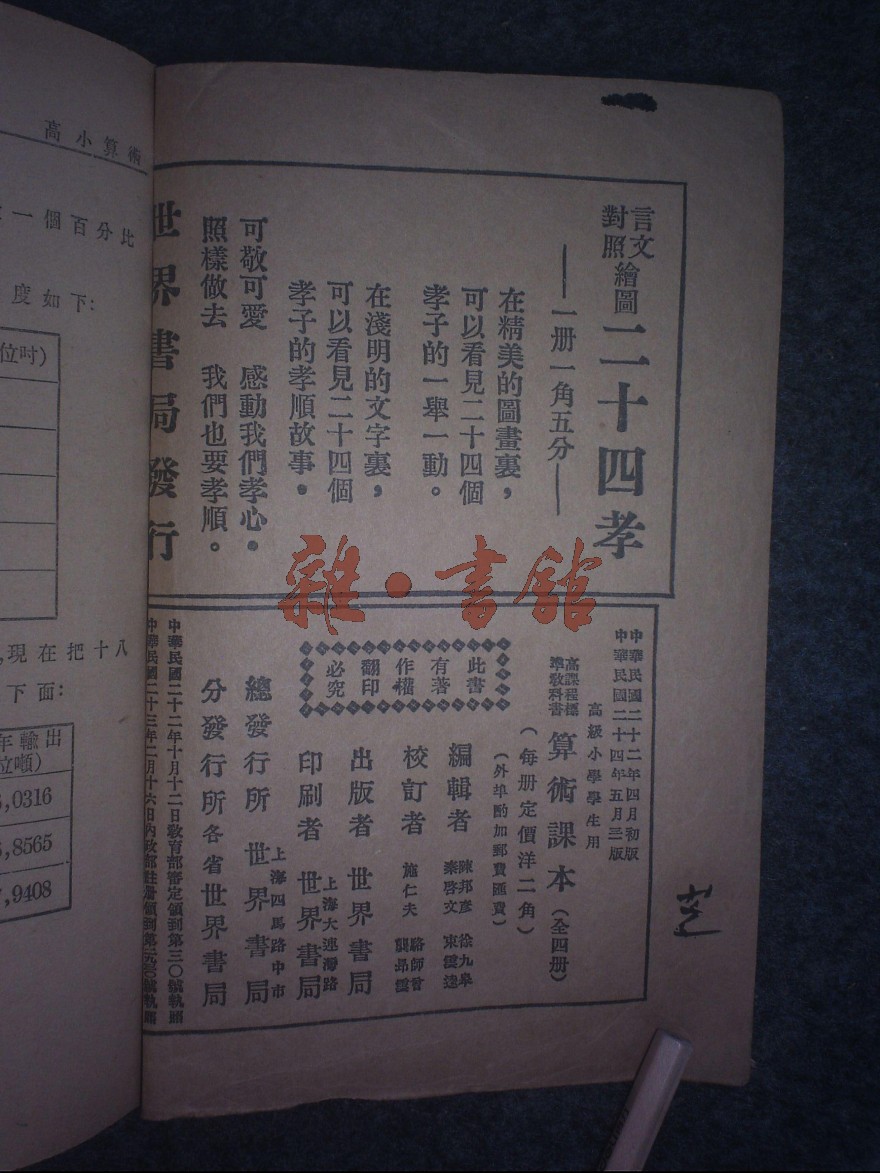 言文
對照
繪圖二十四孝
——一册一角五分——
在精美的圖畫裏，
可以看見二十四個
孝子的一舉一動。
在淺明的文字裏，
可以看見二十四個
孝子的孝順故事。
可敬可愛　感動我們孝心。
照樣做去　我們也要孝順。
世界書局發行
中華民國二十二年四月初版
中華民國二十四年五月三版
高級小學學生用
高課程標
準教科書
算術課本（全四册）
（每册定價洋二角）
（外埠酌加郵費匯費）
此書
有著
作權
翻印
必究
編輯者　陳邦彥　徐九皋
秦啓文　東雲逵
校訂者　施仁夫　駱師曾
龔昂雲
出版者　世界書局
印刷者　上海大連灣路
世界書局
總發行所　上海四馬路中市
世界書局
分發行所　各省世界書局
中華民國二十二年十月十二日敎育部審定領到第三〇號執照
中華民國二十三年二月十六日內政部註册領到第號執照
高小算術
一個百分比
度如下:
位吋)
現在把十八
下面:
年輸出
位噸)
,0316
,8565
,9408
雜·書館